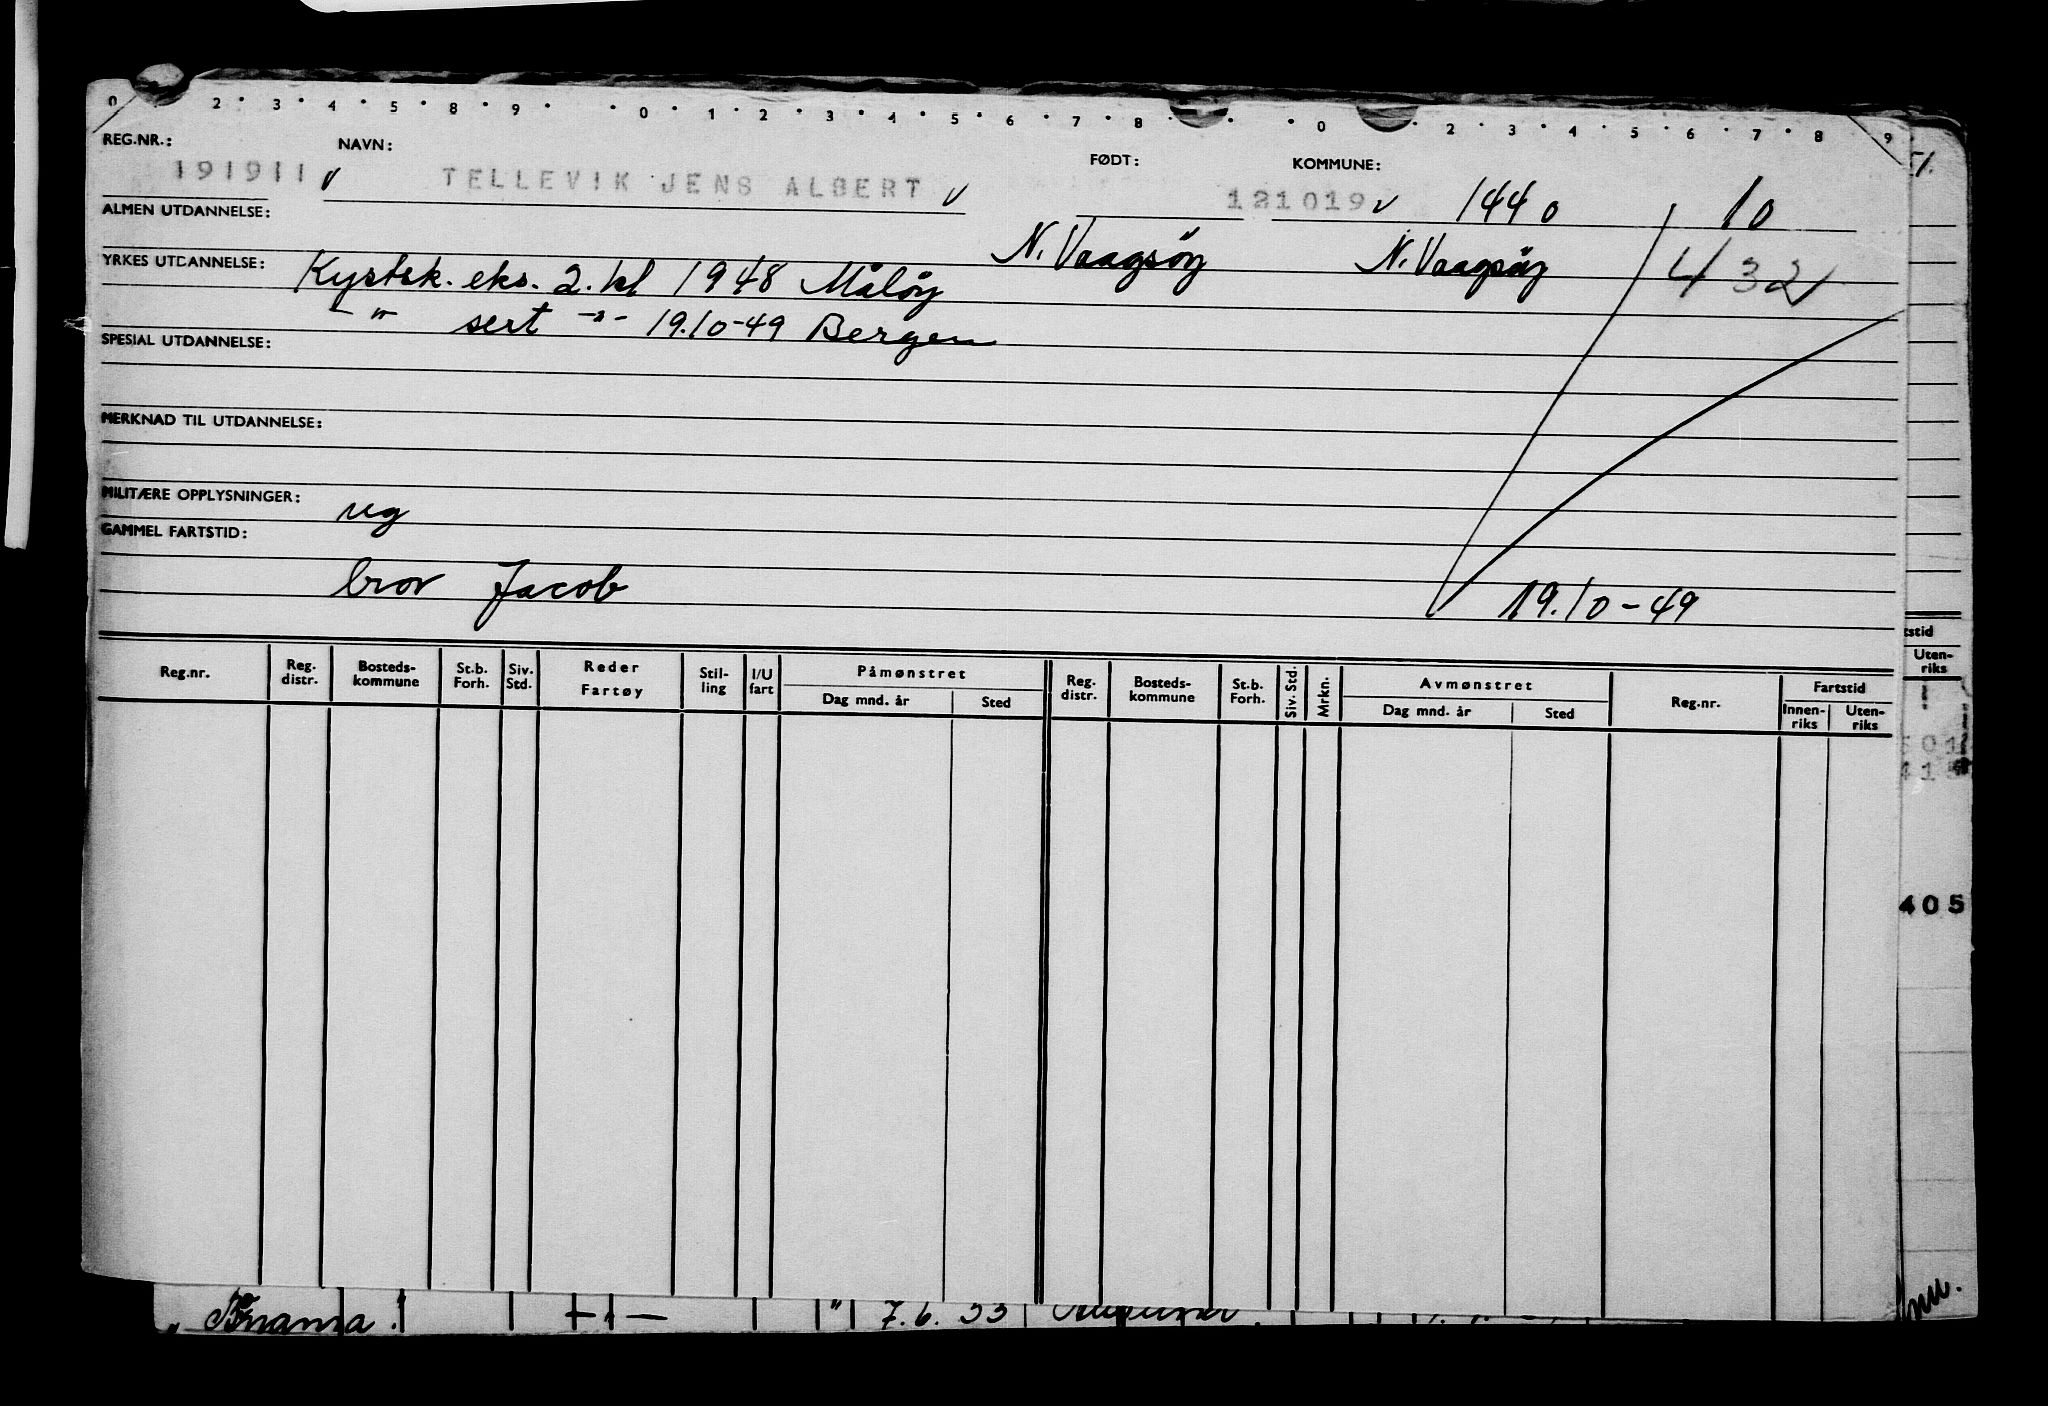 0 2 3 4 5 8 9 0 1 2 3 4 5 6 7 8 0 2 3 4 5 6 7 8 9
REG.NR.: NAVN: FØDT: KOMMUNE:
191911 v TELLEVIK JENS ALBERT v 121019 v 1440 10
ALMEN UTDANNELSE:
N. Vaagsöy N. Vaagsöy 432
YRKES UTDANNELSE: Kystsk. eks. 2. kl 1948 Målöy
-"- sert -"- 19.10-49 Bergen
SPESIAL UTDANNELSE:
MERKNAD TIL UTDANNELSE:
MILITÆRE OPPLYSNINGER: ug
GAMMEL FARTSTID:
bror Jacob 19.10-49
Reg.nr. Reg. distr. Bosteds- kommune St.b. Forh. Siv. Std. Reder Fartøy Stil- ling I/U fart Påmønstret Dag mnd. år Sted Reg. distr. Bosteds- kommune St.b. Forh. Siv. Std. Mrkn. Avmønstret Dag mnd. år Sted Reg.nr. Fartstid Innen- riks Uten- riks
51.
tstid
Uten-
riks
405
" 7.6.53